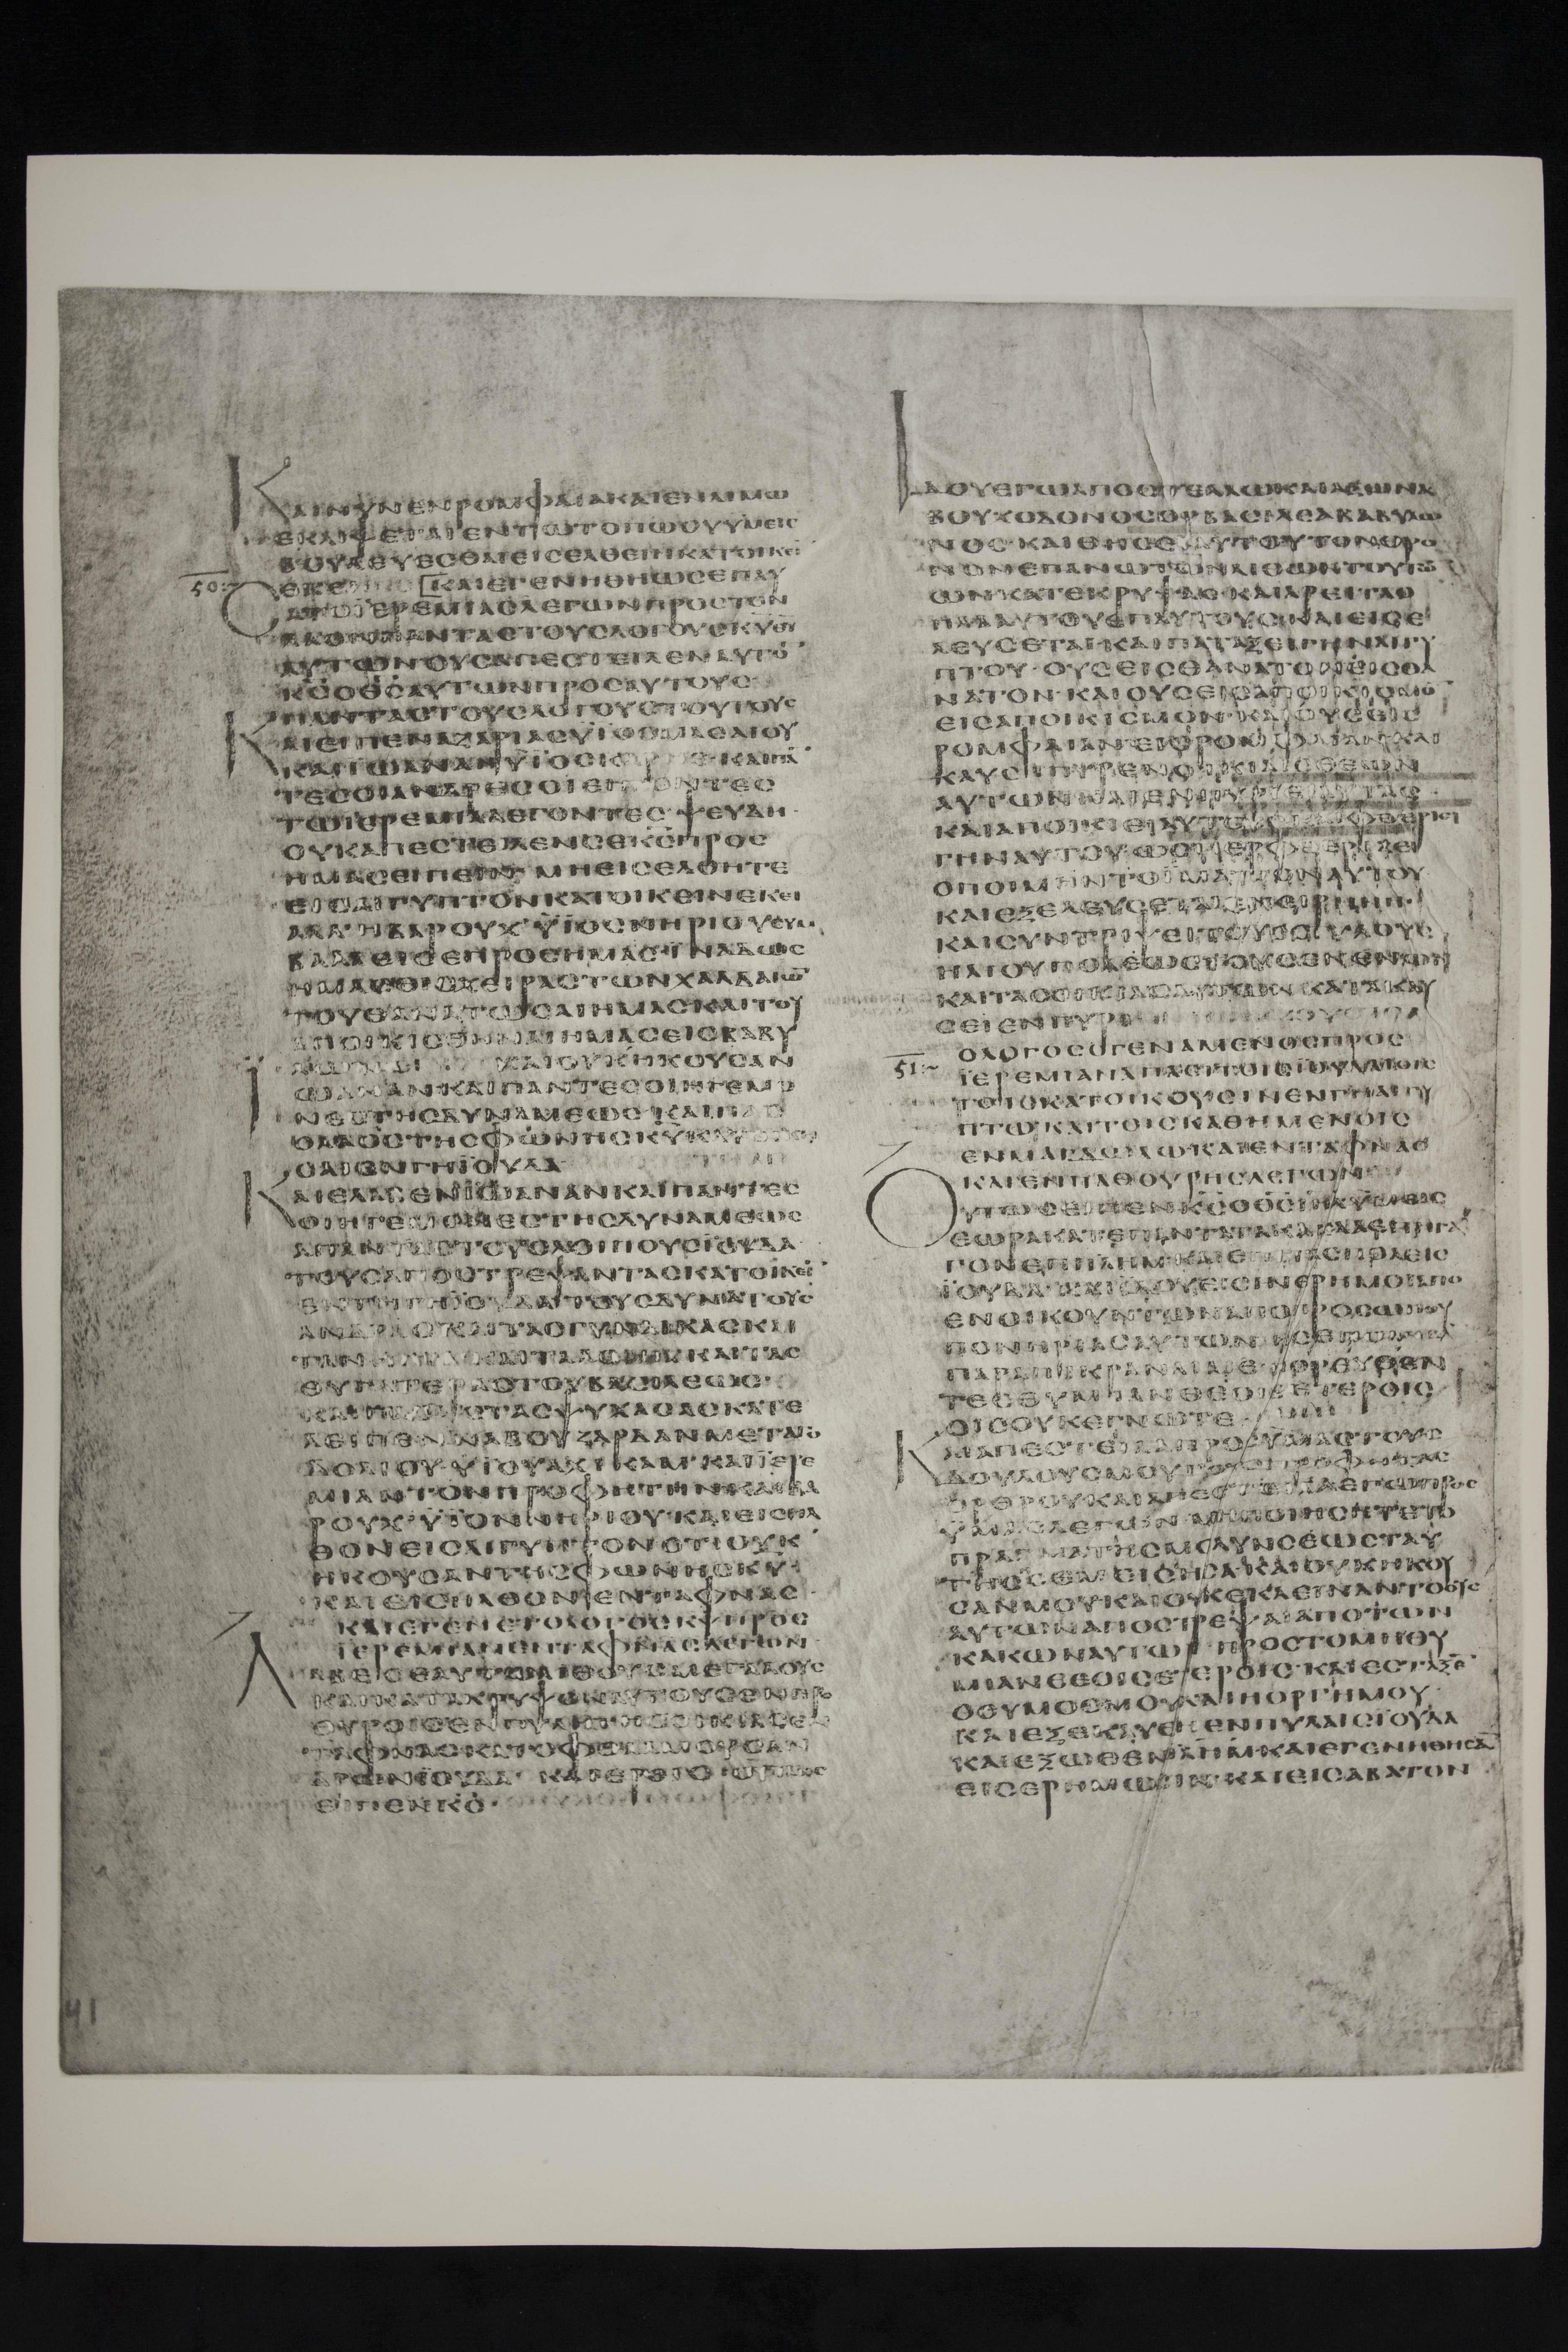 ΚΑΙΝΥΝΕΝΡΟΜΦΑΙΑΚΑΙΕΝΛΙΜΩ
ΕΚΛΕΙΨΕΤΑΙΕΝΤΩΤΟΠΩΟΥΥΜΕΙϹ
ΒΟΥΛΕΥΕϹΘΑΙΕΙϹΕΛΘΕΙΝΚΑΤΟΙΚΕΙ
50 ΕΚΕΙ [ΚΑΙΕΓΕΝΗΘΗΩϹΕΠΑΥ
ϹΑΤΟΪΕΡΕΜΙΑϹΛΕΓΩΝΠΡΟϹΤΟΝ
ΛΑΟΝΠΑΝΤΑϹΤΟΥϹΛΟΓΟΥϹΚΥ
ΑΥΤΩΝΟΥϹΑΠΕϹΤΕΙΛΕΝΑΥΤΟ
ΚϹΟΘϹΑΥΤΩΝΠΡΟϹΑΥΤΟΥϹ
ΠΑΝΤΑϹΤΟΥϹΛΟΓΟΥϹΤΟΥΤΟΥϹ
ΚΑΙΕΙΠΕΝΑΖΑΡΙΑϹΥΪΟϹΜΑΑϹΑΙΟΥ
ΚΑΙΪΩΑΝΑΝΥΪΟϹ ΚΑΙΠΑ
ΤΕϹΟΙΑΝΔΡΕϹΟΙΕΙΠΟΝΤΕϹ
ΤΩΪΕΡΕΜΙΑΛΕΓΟΝΤΕϹ·ΨΕΥΔΗ·
ΟΥΚΑΠΕϹΤΕΙΛΕΝϹΕΚϹΠΡΟϹ
ΗΜΑϹΕΙΠΕΙΝ· ΜΗΕΙϹΕΛΘΗΤΕ
ΕΙϹΑΙΓΥΠΤΟΝΚΑΤΟΙΚΕΙΝΕΚΕΙ
ΑΛΛΗΒΑΡΟΥΧ·ΫΪΟϹΝΗΡΙΟΥ
ΒΑΛΛΕΙϹΕΠΡΟϹΗΜΑϹΪΝΑΔΩϹ
ΗΜΑϹΕΙϹΧΕΙΡΑϹΤΩΝΧΑΛΔΑΙΩ
ΤΟΥΘΑΝΑΤΩϹΑΙΗΜΑϹΚΑΙΤΟΥ
ΑΠΟΙΚΙϹΘΗΝΑΙΗΜΑϹΕΙϹΒΑΒΥ
ΚΑΙΟΥΚΗΚΟΥϹΑΝ
ΪΩΑΝΑΝΚΑΙΠΑΝΤΕϹΟΙΗΓΕΜΟ
ΝΕϹΤΗϹΔΥΝΑΜΕΩϹ·ΚΑΙΠΑϹ
ΟΛΑΟϹΤΗϹΦΩΝΗϹΚΥ
ϹΑΙΕΝΓΗΪΟΥΔΑ
ΚΑΙΕΛΑΒΕΝΪΩΑΝΑΝΚΑΙΠΑΝΤΕϹ
ΟΙΗΓΕΜΟΝΕϹΤΗϹΔΥΝΑΜΕΩϹ
ΑΠΑΝΤΑϹΤΟΥϹΛΟΙΠΟΥϹΪΟΥΔΑ
ΤΟΥϹΑΠΟϹΤΡΕΨΑΝΤΑϹΚΑΤΟΙΚΕΙ
ΕΝΤΗΓΗΪΟΥΔΑ·ΤΟΥϹΔΥΝΑΤΟΥϹ
ΑΝΔΡΑϹΚΑΙΤΑϹΓΥΝΑΙΚΑϹΚΑΙ
ΚΑΙΤΑϹ
ΘΥΓΑΤΕΡΑϹΤΟΥΒΑϹΙΛΕΩϹ·
ΚΑΙ ΤΑϹΨΥΧΑϹΑϹΚΑΤΕ
ΛΕΙΠΕΝΝΑΒΟΥΖΑΡΔΑΝΜΕΤΑΓΟ
ΔΟΛΙΟΥ·ΥΪΟΥΑΧΙΚΑΜ·ΚΑΙΪΕΡΕ
ΜΙΑΝΤΟΝΠΡΟΦΗΤΗΝΚΑΙΒΑ
ΡΟΥΧ·ΫΪΟΝΝΗΡΙΟΥ·ΚΑΙΕΙϹΗΛ
ΘΟΝΕΙϹΑΙΓΥΠΤΟΝΟΤΙΟΥΚ
ΗΚΟΥϹΑΝΤΗϹΦΩΝΗϹΚΥ·
ΚΑΙΕΙϹΗΛΘΟΝΕΝΤΑΦΝΑϹ·
ΚΑΙΕΓΕΝΕΤΟΛΟΓΟϹΚΥΠΡΟϹ
ΪΕΡΕΜΙΑΝΕΝΤΑΦΝΑϹΛΕΓΩΝ·
ΛΑΒΕϹΕΑΥΤΩΛΙΘΟΥϹΜΕΓΑΛΟΥϹ
ΚΑΙΚΑΤΑΚΡΥΨΟΝΑΥΤΟΥϹΕΝΠΡΟ
ΘΥΡΟΙϹΕΝΠΥΛΗΤΗϹΟΙΚΙΑϹΕΝ
ΤΑΦΝΑϹΚΑΤΟΦΘΑΛΜΟΥϹΑΝ
ΔΡΩΝΪΟΥΔΑ· ΚΑΙΕΡΕΙϹΟΥΤΩϹ
ΕΙΠΕΝΚϹ·
ΪΔΟΥΕΓΩΑΠΟϹΤΕΛΛΩΚΑΙΑΞΩΝΑ
ΒΟΥΧΟΔΟΝΟϹΟΡΒΑϹΙΛΕΑΒΑΒΥΛΩ
ΝΟϹ·ΚΑΙΘΗϹΕΙΑΥΤΟΥΤΟΝΘΡΟ
ΝΟΝΕΠΑΝΩΤΩΝΛΙΘΩΝΤΟΥΤΩ
ΩΝΚΑΤΕΚΡΥΨΑϹ·ΚΑΙΑΡΕΙΤΑΟ
ΠΛΑΑΥΤΟΥΕΠΑΥΤΟΥϹ·ΚΑΙΕΙϹΕ
ΛΕΥϹΕΤΑΙ·ΚΑΙΠΑΤΑΞΕΙΓΗΝΑΙΓΥ
ΠΤΟΥ·ΟΥϹΕΙϹΘΑΝΑΤΟΝΕΙϹΘΑ
ΝΑΤΟΝ·ΚΑΙΟΥϹΕΙϹΑΠΟΙΚΙϹΜΟ
ΕΙϹΑΠΟΙΚΙϹΜΟΝ·ΚΑΙΟΥϹΕΙϹ
ΡΟΜΦΑΙΑΝΕΙϹΡΟΜΦΑΙΑΝ·ΚΑΙ
ΚΑΥϹΕΙΠΥΡΕΝΟΙΚΙΑΙϹΘΕΩΝ
ΑΥΤΩΝ
ΓΗΝΑΥΤΟΥ·ΩϹΠΕΡΦΘΕΙΡΙΖΕΙ
ΟΠΟΙΜΗΝΤΟΪΜΑΤΙΟΝΑΥΤΟΥ
ΚΑΙΕΞΕΛΕΥϹΕΤΑΙΕΝΕΙΡΗΝΗ·
ΚΑΙϹΥΝΤΡΙΨΕΙΤΟΥϹϹΤΥΛΟΥϹ
ΗΛΙΟΥΠΟΛΕΩϹΤΟΥϹΕΝΩΝ
ΚΑΙΤΑϹΟΙΚΙΑϹΑΥΤΩΝΚΑΤΑΚΑΥ
ϹΕΙΕΝΠΥΡΙ
51 ΟΛΟΓΟϹΟΓΕΝΑΜΕΝΟϹΠΡΟϹ
ΪΕΡΕΜΙΑΝΑΠΑϹΙΤΟΙϹΪΟΥΔΑΙΟΙϹ
ΤΟΙϹΚΑΤΟΙΚΟΥϹΙΝΕΝΓΗΑΙΓΥ
ΠΤΩ·ΚΑΙΤΟΙϹΚΑΘΗΜΕΝΟΙϹ
ΕΝΜΑΓΔΩΛΩΚΑΙΕΝΤΑΦΝΑϹ
ΚΑΙΕΝΓΗΠΑΘΟΥΡΗϹΛΕΓΩΝ
ΟΥΤΩϹΕΙΠΕΝΚϹΟΘϹΙΗΛΥΜΕΙϹ
ΕΩΡΑΚΑΤΕΠΑΝΤΑΤΑΚΑΚΑΑΕΠΗΓΑ
ΓΟΝΕΠΙΙΛΗΜ·ΚΑΙΕΠΙΠΟΛΕΙϹ
ΪΟΥΔΑ·ΚΑΙΪΔΟΥΕΙϹΙΝΕΡΗΜΟΙΑΠΟ
ΕΝΟΙΚΟΥΝΤΩΝΑΠΟΠΡΟϹΩΠΟΥ
ΠΟΝΗΡΙΑϹΑΥΤΩΝΗϹΕΠΟΙΗϹΑ
ΠΑΡΑΠΙΚΡΑΝΑΙΜΕΠΟΡΕΥΘΕΝ
ΤΕϹΘΥΜΙΑΝΘΕΟΙϹΕΤΕΡΟΙϹ
ΟΙϹΟΥΚΕΓΝΩΤΕ
ΚΑΙΑΠΕϹΤΕΙΛΑΠΡΟϹΥΜΑϹΤΟΥϹ
ΔΟΥΛΟΥϹΜΟΥΤΟΥϹΠΡΟΦΗΤΑϹ
ΟΡΘΡΟΥΚΑΙΑΠΕϹΤΕΙΛΑΛΕΓΩΝΠΡΟϹ
ΥΜΑϹΛΕΓΩΝ·ΜΗΠΟΙΗϹΗΤΕΤΟ
ΠΡΑΓΜΑΤΗϹΜΟΛΥΝϹΕΩϹΤΑΥ
ΤΗϹΗϹΕΜΕΙϹΗϹΑ·ΚΑΙΟΥΚΗΚΟΥ
ϹΑΝΜΟΥΚΑΙΟΥΚΕΚΛΕΙΝΑΝΤΟΟΥϹ
ΑΥΤΩΝΑΠΟϹΤΡΕΨΑΙΑΠΟΤΩΝ
ΚΑΚΩΝΑΥΤΩΝ·ΠΡΟϹΤΟΜΗΘΥ
ΜΙΑΝΘΕΟΙϹΕΤΕΡΟΙϹ·ΚΑΙΕϹΤΑΞΕ
ΟΘΥΜΟϹΜΟΥΚΑΙΗΟΡΓΗΜΟΥ·
ΚΑΙΕΞΕΚΑΥΘΗΕΝΠΥΛΑΙϹΪΟΥΔΑ
ΚΑΙΕΞΩΘΕΝΙΛΗΜ·ΚΑΙΕΓΕΝΗΘΗϹΑ
ΕΙϹΕΡΗΜΩϹΙΝ·ΚΑΙΕΙϹΑΒΑΤΟΝ
41